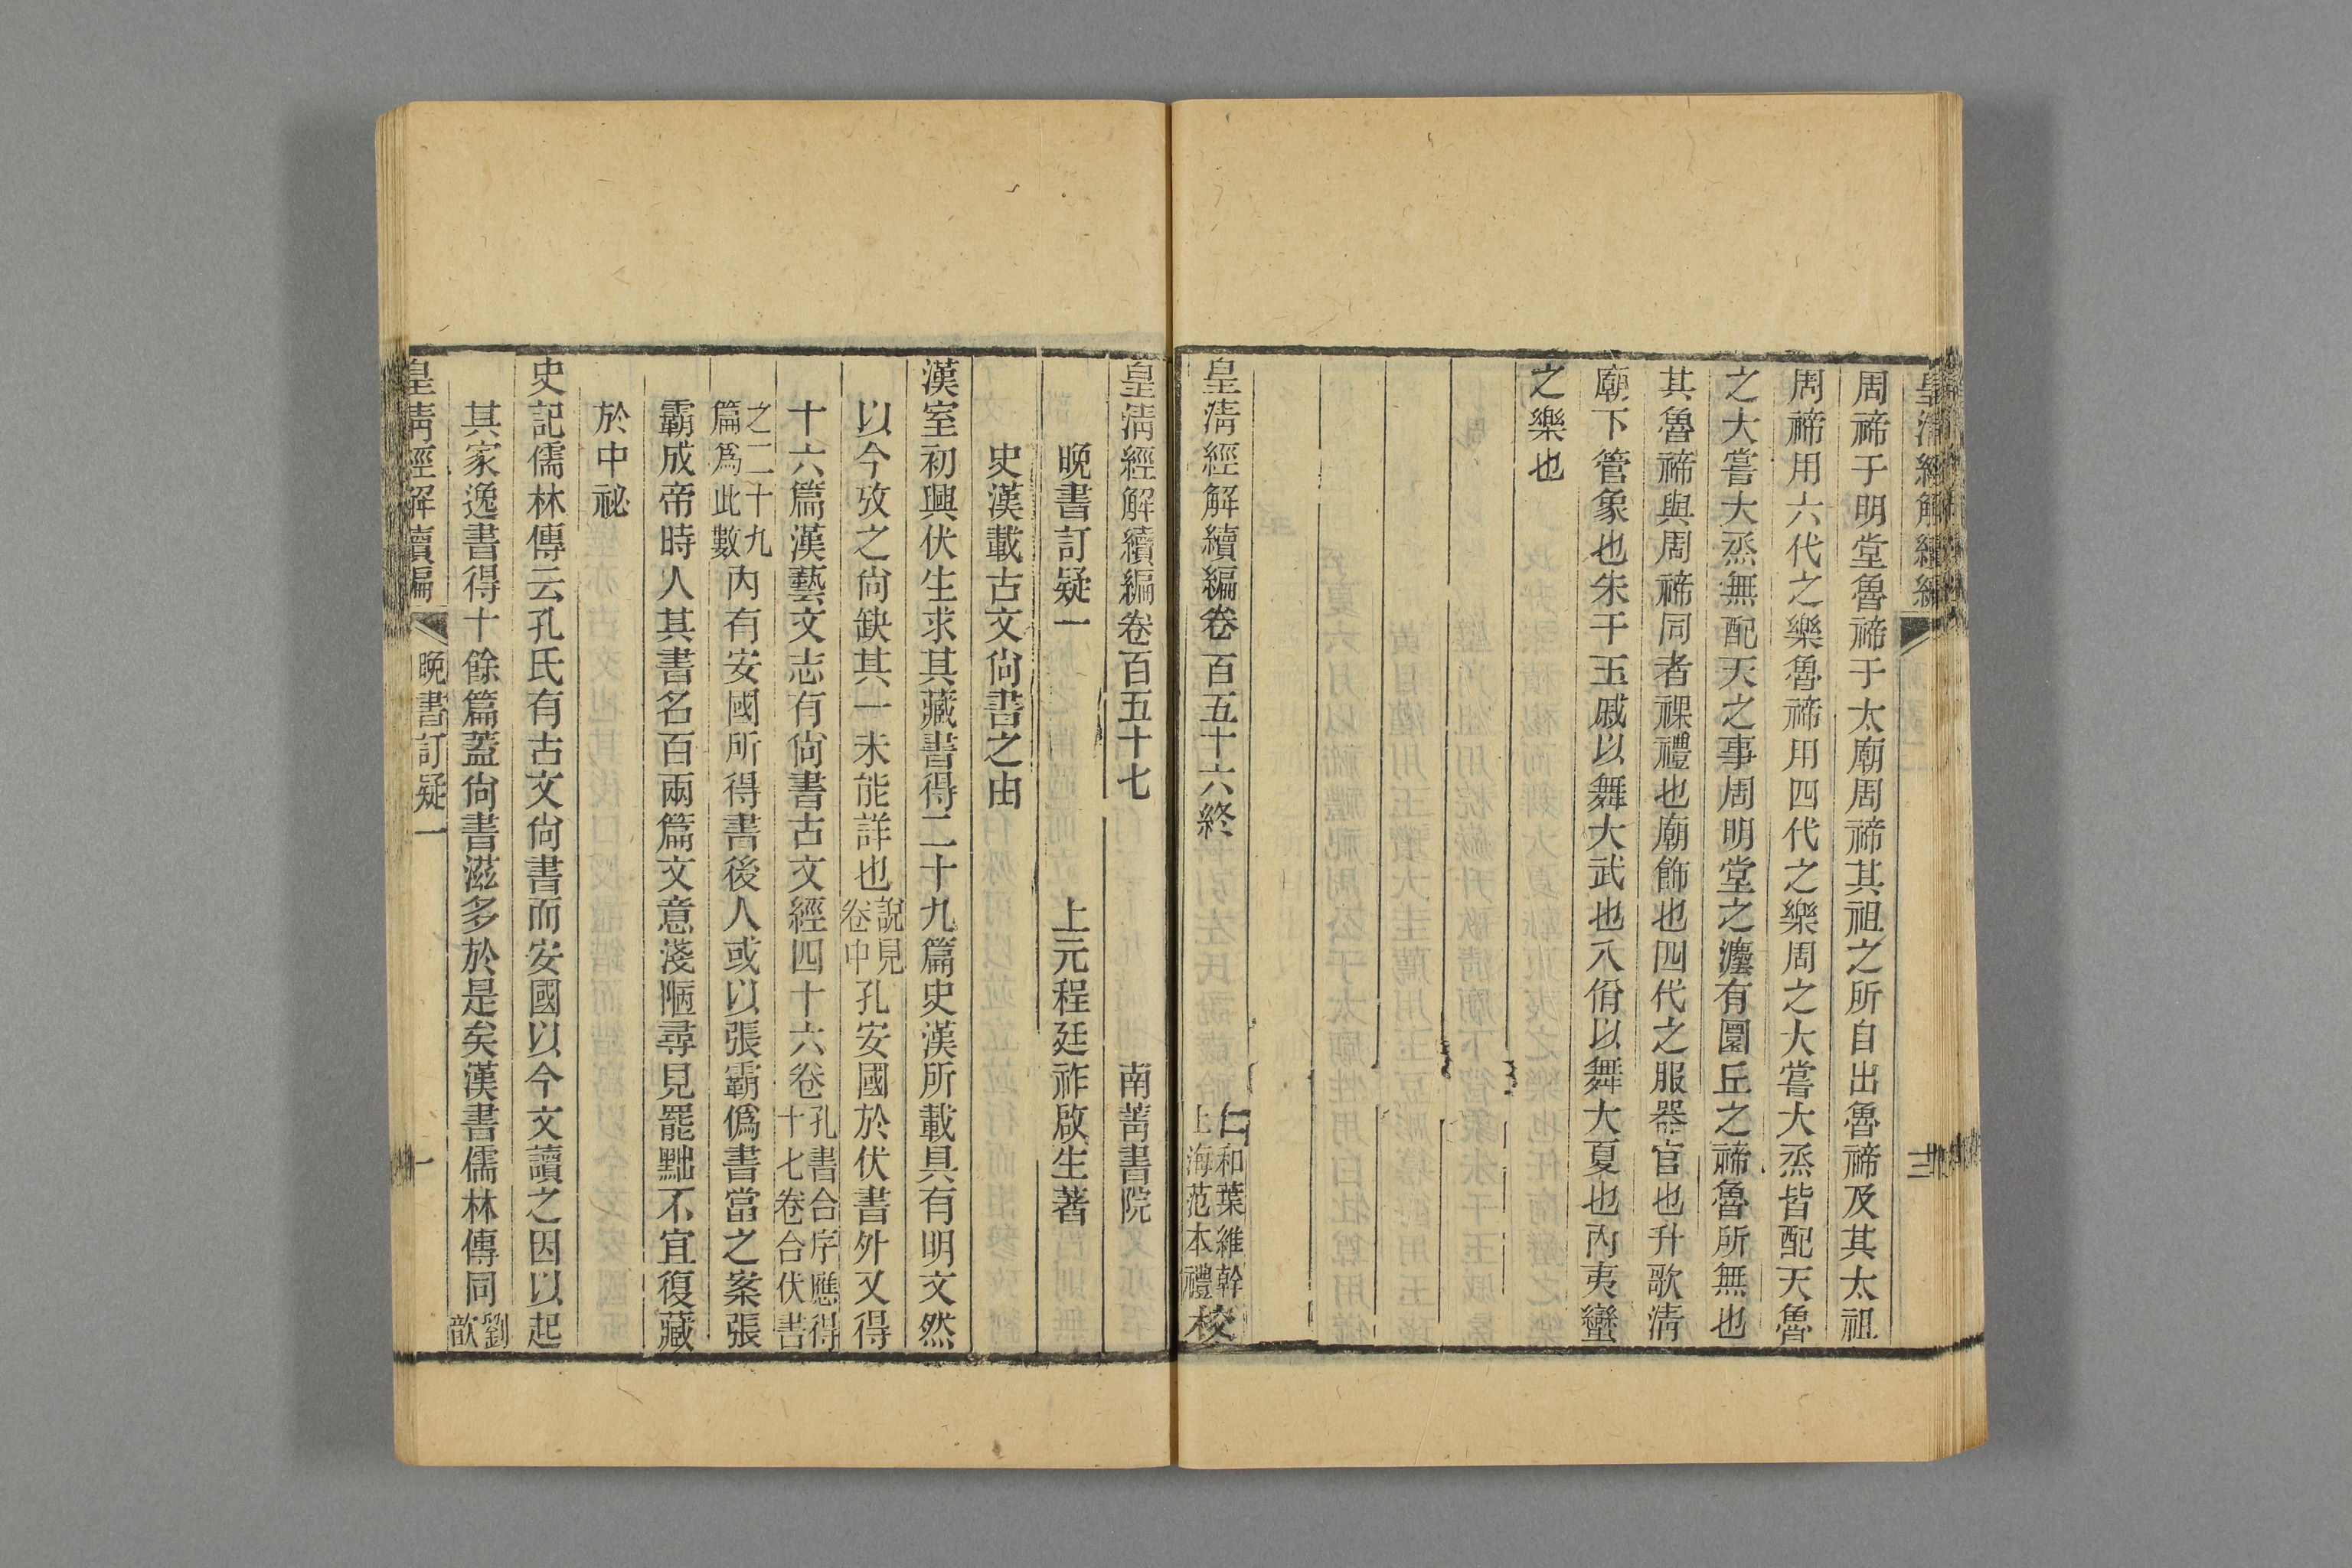 皇清經解續編
周禘于明堂魯禘于太廟周禘其祖之所自出魯禘及其太祖
周禘用六代之樂魯禘用四代之樂周之大嘗大烝皆配天魯
之大嘗大烝無配天之事周明堂之灋有圜丘之禘魯所無也
其魯禘與周禘同者祼禮也廟飾也四代之服器官也升歌清
廟下管象也朱干玉戚以舞大武也八佾以舞大夏也內夷蠻
之樂也
皇清經解續編卷百五十六終
仁和葉維幹
上海范本禮
校
皇清經解續編卷百五十七
南菁書院
晚書訂疑一
上元程廷祚啟生著
史漢載古文尙書之由
漢室初興伏生求其藏書得二十九篇史漢所載具有明文然
以今攷之尙缺其一未能詳也說見卷中孔安國於伏書外又得
十六篇漢藝文志有尙書古文經四十六卷孔書合序應得十七卷合伏書
之二十九篇爲此數內有安國所得書後人或以張霸僞書當之案張
霸成帝時人其書名百兩篇文意淺陋尋見罷黜不宜復藏
於中祕
史記儒林傳云孔氏有古文尙書而安國以今文讀之因以起
其家逸書得十餘篇蓋尙書滋多於是矣漢書儒林傳同劉歆
皇清經解續編
晚書訂疑一
一